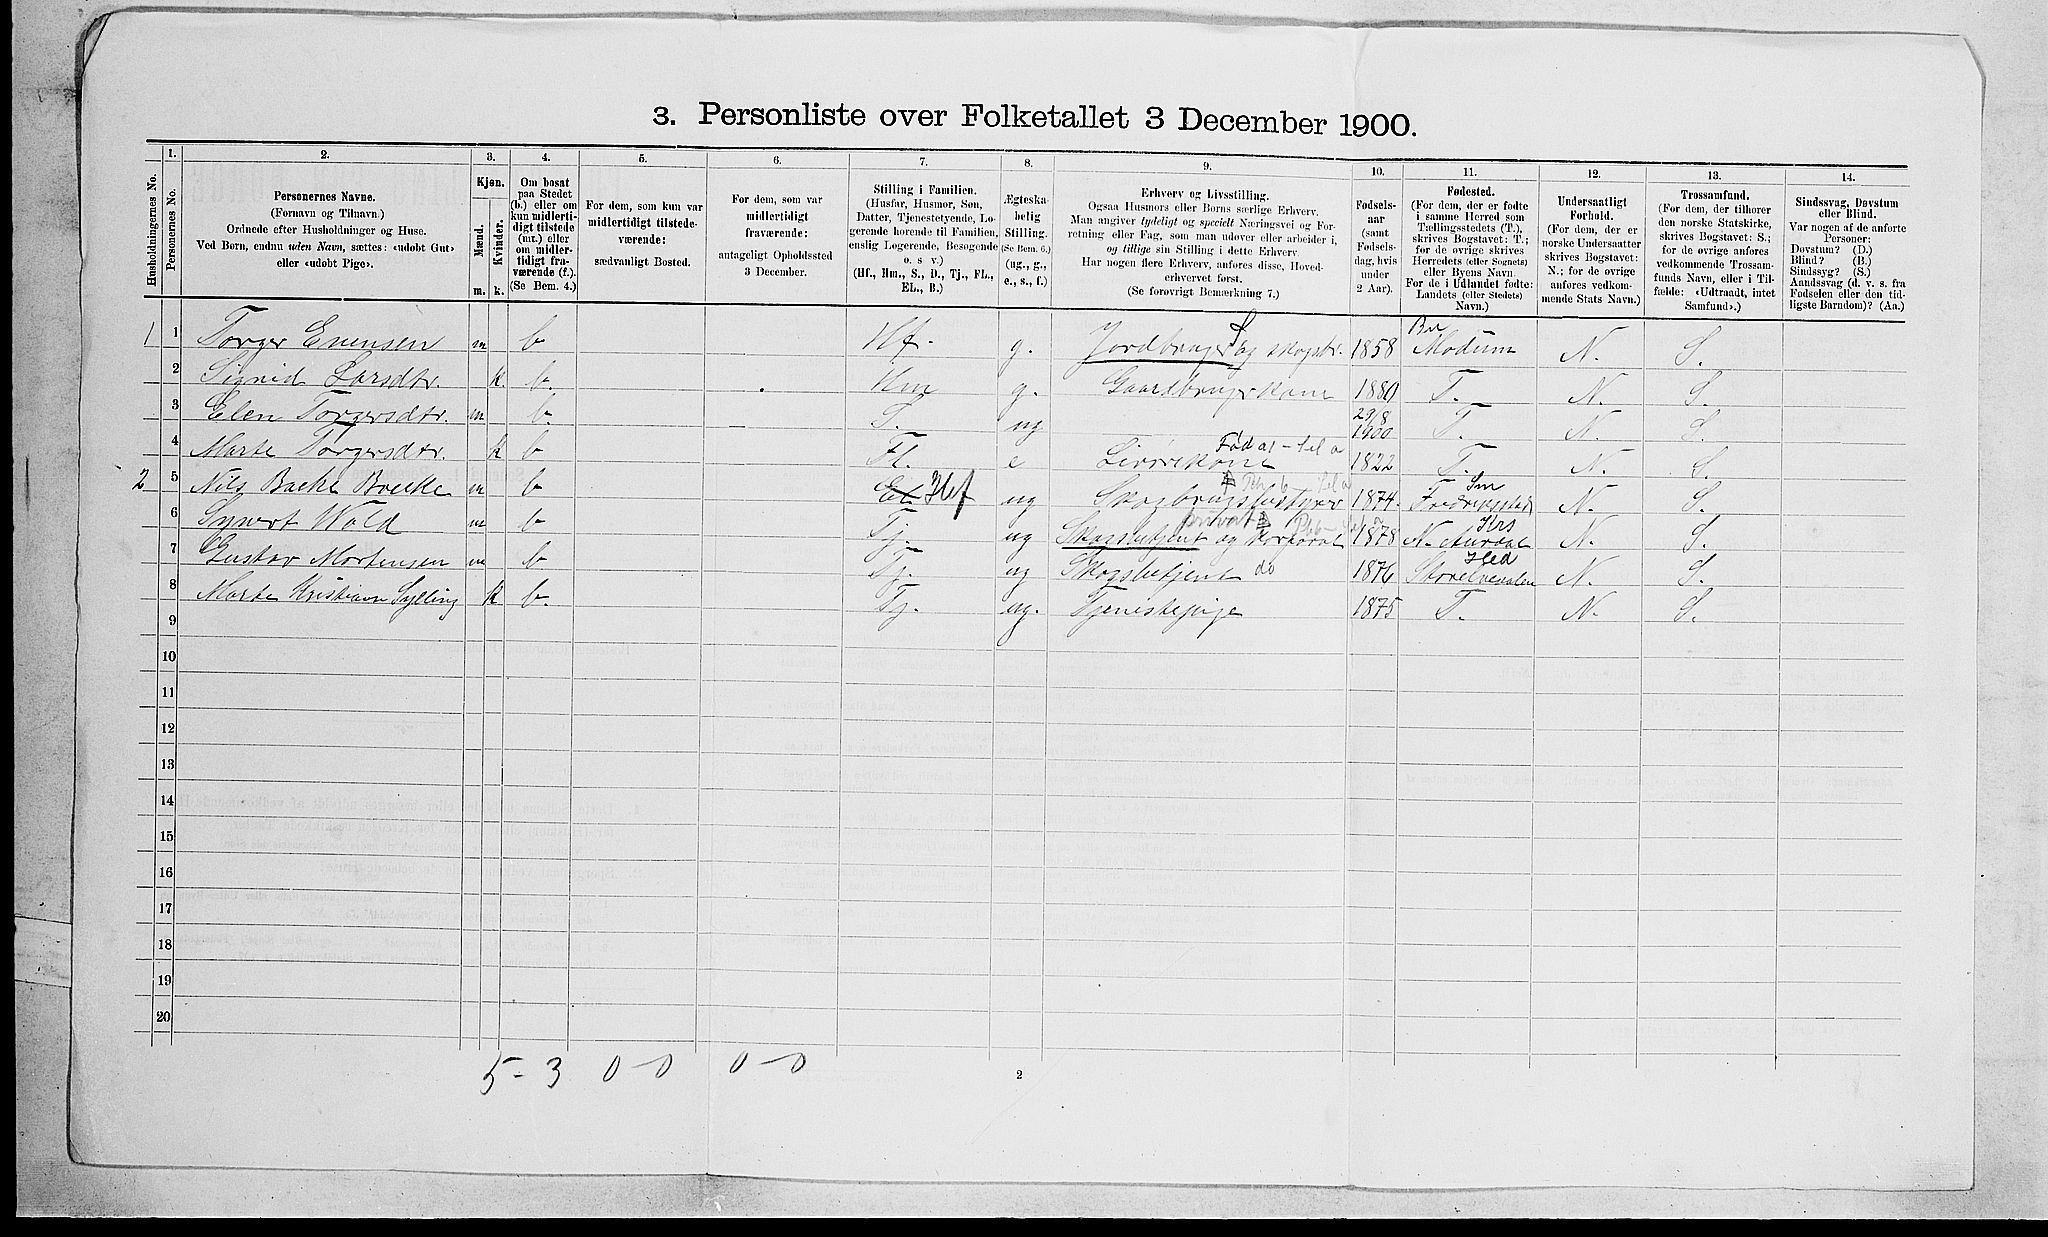 3. Personliste over Folketallet 3 December 1900.
1. 2. 3. 4. 5. 6. 7. 8. 9. 10. 11. 12. 13. 14.
Husholdningernes No.
Personernes No.
Personernes Navne.
(Fornavn og Tilnavn.)
Ordnede efter Husholdninger og Huse.
Ved Børn, endnu uden Navn, sættes: «udøbt Gut»
eller «udøbt Pige».
Kjøn.
Mænd.
Kvinder.
m. k.
Om bosat
paa Stedet
(b.) eller om
kun midlerti-
digt tilstede
(mt.) eller
om midler-
tidigt fra-
værende (f.).
(Se Bem. 4.)
For dem, som kun var
midlertidigt tilstede-
værende:
sædvanligt Bosted.
For dem, som var
midlertidigt
fraværende:
antageligt Opholdssted
3 December.
Stilling i Familien.
(Husfar, Husmor, Søn,
Datter, Tjenestetyende, Lo-
gerende hørende til Familien,
enslig Logerende, Besøgende
o. s. v.)
(Hf., Hm., S., D., Tj., FL.,
EL., B.)
Ægteska-
belig
Stilling.
(Se Bem. 6.)
(ug., g.,
e., s., f.)
Erhverv og Livsstilling.
Ogsaa Husmors eller Børns særlige Erhverv.
Man angiver tydeligt og specielt Næringsvei og For-
retning eller Fag, som man udøver eller arbeider i,
og tillige sin Stilling i dette Erhverv.
Har nogen flere Erhverv, anføres disse, Hoved-
erhvervet først.
(Se forøvrigt Bemærkning 7.)
Fødsels-
aar
(samt
Fødsels-
dag, hvis
under
2 Aar).
Fødested.
(For dem, der er fødte
i samme Herred som
Tællingsstedets (T.),
skrives Bogstavet: T.;
for de øvrige skrives
Herredets (eller Sognets)
eller Byens Navn.
For de i Udlandet fødte:
Landets (eller Stedets)
Navn.)
Undersaatligt
Forhold.
(For dem, der er
norske Undersaatter
skrives Bogstavet:
N.; for de øvrige
anføres vedkom-
mende Stats Navn.)
Trossamfund.
(For dem, der tilhører
den norske Statskirke,
skrives Bogstavet: S.;
for de øvrige anføres
vedkommende Trossam-
funds Navn, eller i Til-
fælde: «Udtraadt, intet
Samfund».)
Sindssvag, Døvstum
eller Blind.
Var nogen af de anførte
Personer:
Døvstum? (D.)
Blind? (B.)
Sindssyg? (S.)
Aandssvag (d. v. s. fra
Fødselen eller den tid-
ligste Barndom)? (Aa.)
1 1 Torger Evensen m b Hf. g. Jordbruger S og skogbr. 1858 Bu Modum N. S.
2 Sigrid Larsdtr. k. b. Hm g. Gaardbrugerkone 1880 T. N. S.
3 Elen Torgersdtr. m b. S. ug 29/8 1900 T. N. S.
4 Marte Torgersdtr. k b Fl. e Livørekone 1822 T. N. S.
2 5 Nils Backe Brekke m b El Hf ug Skogbrugsbestyrer 1874. Sm Fredrikstad N. S.
6 Syvert Wold m b Tj. ug Skogsbetjent og Korporal privat 1878 Krs N. Aurdal N. S.
7 Gustav Mortensen m b Tj. ug Skogsbetjent do 1876 Hed Storelvedalen N. S.
8 Marte Kristiane Sylling k b. Tj. ug. Tjenestepige 1875 T. N. S.
9
10
11
12
13
14
15
16
17
18
19
20
5 - 3 0 - 0 0 - 0
2